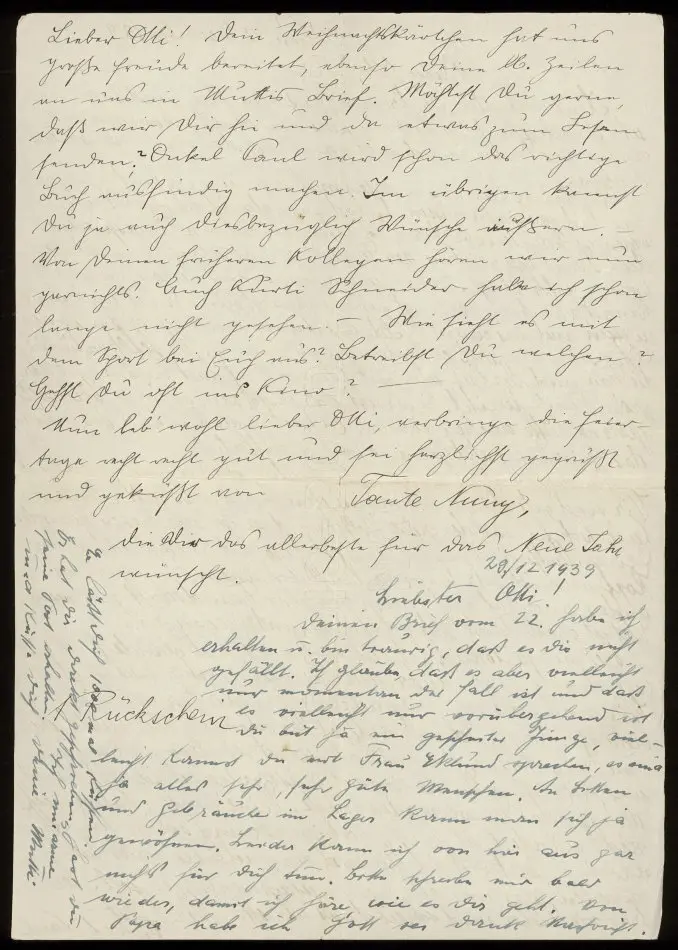 Lieber Otti! Dein Weihnachtskärtchen hat uns
große Freude bereitet, ebenso Deine lb. Zeilen
an uns in Muttis Brief. Möchtest Du gerne,
daß wir Dir hie und da etwas zum Lesen
senden? Onkel Paul wird schon das richtige
Buch ausfindig machen. Im übrigen kannst
Du ja auch diesbezüglich Wünsche äußern. —
Von Deinen früheren Kollegen hören wir nun
garnichts. Auch Kurti Schneider habe ich schon
lange nicht gesehen. — Wie sieht es mit
dem Sport bei Euch aus? Betreibst Du welchen?
Gehst Du oft ins Kino? —
Nun leb' wohl lieber Otti, verbringe die Feier-
tage recht recht gut und sei herzlichst gegrüßt
und geküßt von Tante Nuny,
die Dir das allerbeste für das Neue Jahr
wünscht.
28/12 1939
Liebster Otti!
Deinen Brief vom 22. habe ich
erhalten u. bin traurig, daß es dir nicht
gefällt. Ich glaube, daß es aber vielleicht
nur momentan der Fall ist und daß
es vielleicht nur vorübergehend ist
Rückschein
du bist ja ein gescheiter Junge, viel-
leicht kannst du mit Frau Eklund sprechen, es sind
ja alles sehr, sehr gute Menschen. An
und Gebräuche im Lager kann man sich ja
gewöhnen. Leider kann ich von hier aus gar
nichts für dich tun. Bitte schreibe mir bald
wieder, damit ich höre, wie es dir geht. Von
Papa habe ich Gott sei dank Nachricht.
Er läßt dich 1000 mal küssen.
Er hat dir direkt geschrieben, hast du
seine Post erhalten? Ich umarme
und küsse dich deine Mutti.